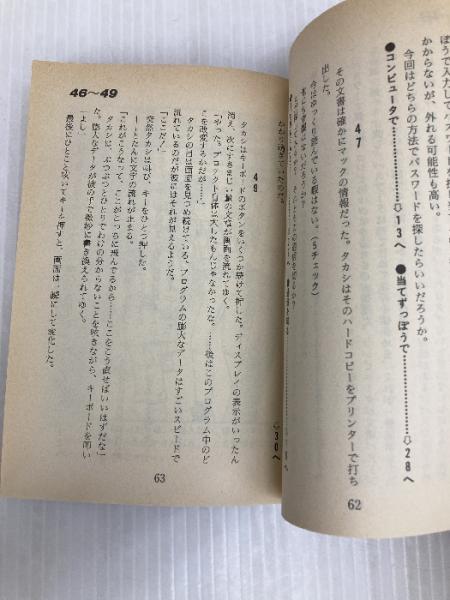 ぽうで入力してパスワードを探す
かからないが、外れる可能性も高い。
今回はどちらの方法でパスワードを探したらいいだろうか。
●コンピュータで…………⇩13へ ●当てずっぽうで…………⇩28へ
47
その文書は確かにマックの情報だった。タカシはそのハードコピーをプリンターで打ち
出した。
今はゆっくり読んでいる暇はない。(Sチェック)
62
46〜49
⇩30へ
49
タカシはキーボードのボタンをいくつか続けて押した。ディスプレイの表示がいったん
消え、次にすさまじい量の文字が画面を流れてゆく。
「やった。プロテクト自体は大したもんじゃなかったな。……後はこのプログラム中のど
こを改変するかだが……」
タカシの目は画面を見つめ続けている。プログラムの膨大なデータはすごいスピードで
流れているのだが彼にはそれが見えるようだ。
「ここだ!」
突然タカシは叫び、キーをひとつ押した。
とたんに文字の流れが止まる。
「これがこうなって、ここがこっちに飛んでるから……ここをこう直せばいいはずだな」
タカシは、ぶつぶつとひとりでわけの分からないことを呟きながら、キーボードを叩い
た。膨大なデータが彼の手で微妙に書き換えられてゆく。
「よし」
最後にひとこと呟いてキーを押すと、画面は一瞬にして変化した。
63